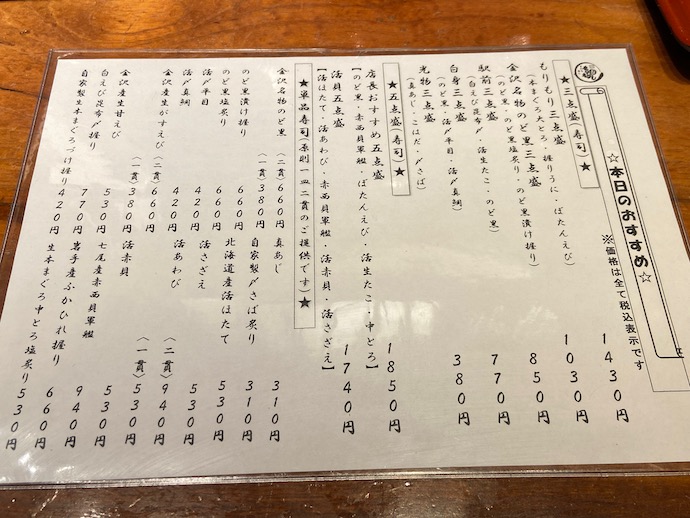 ☆本日のおすすめ☆
※価格は全て税込表示です
★三点盛(寿司)★
もりもり三点盛 1430円
(本まぐろ大とろ・握りうに・ぼたんえび)
金沢名物のど黒三点盛 1030円
(のど黒・のど黒塩炙り・のど黒漬け握り)
駅前三点盛 850円
(白えび昆布〆・活生たこ・のど黒)
白身三点盛 770円
(のど黒・活〆平目・活〆真鯛)
光物三点盛 380円
(真あじ・こはだ・〆さば)
★五点盛(寿司)★
店長おすすめ五点盛 1850円
【のど黒・赤西貝軍艦・ぼたんえび・活生たこ・中とろ】
活貝五点盛 1740円
【活ほたて・活あわび・赤西貝軍艦・活赤貝・活さざえ】
★単品寿司(原則一皿二貫のご提供です)★
金沢名物のど黒(二貫)660円 真あじ 310円
(一貫)380円 自家製〆さば炙り 310円
のど黒漬け握り 660円 北海道産活ほたて 530円
のど黒塩炙り 660円 活さざえ 530円
活〆平目 420円 活あわび (二貫)940円
活〆真鯛 420円 (一貫)530円
金沢産生がすえび(二貫)660円 活赤貝 530円
(一貫)380円 七尾産赤西貝軍艦 940円
金沢産生甘えび 530円 岩手産ふかひれ握り 660円
白えび昆布〆握り 770円 生本まぐろ中とろ塩炙り 530円
自家製生本まぐろづけ握り 420円